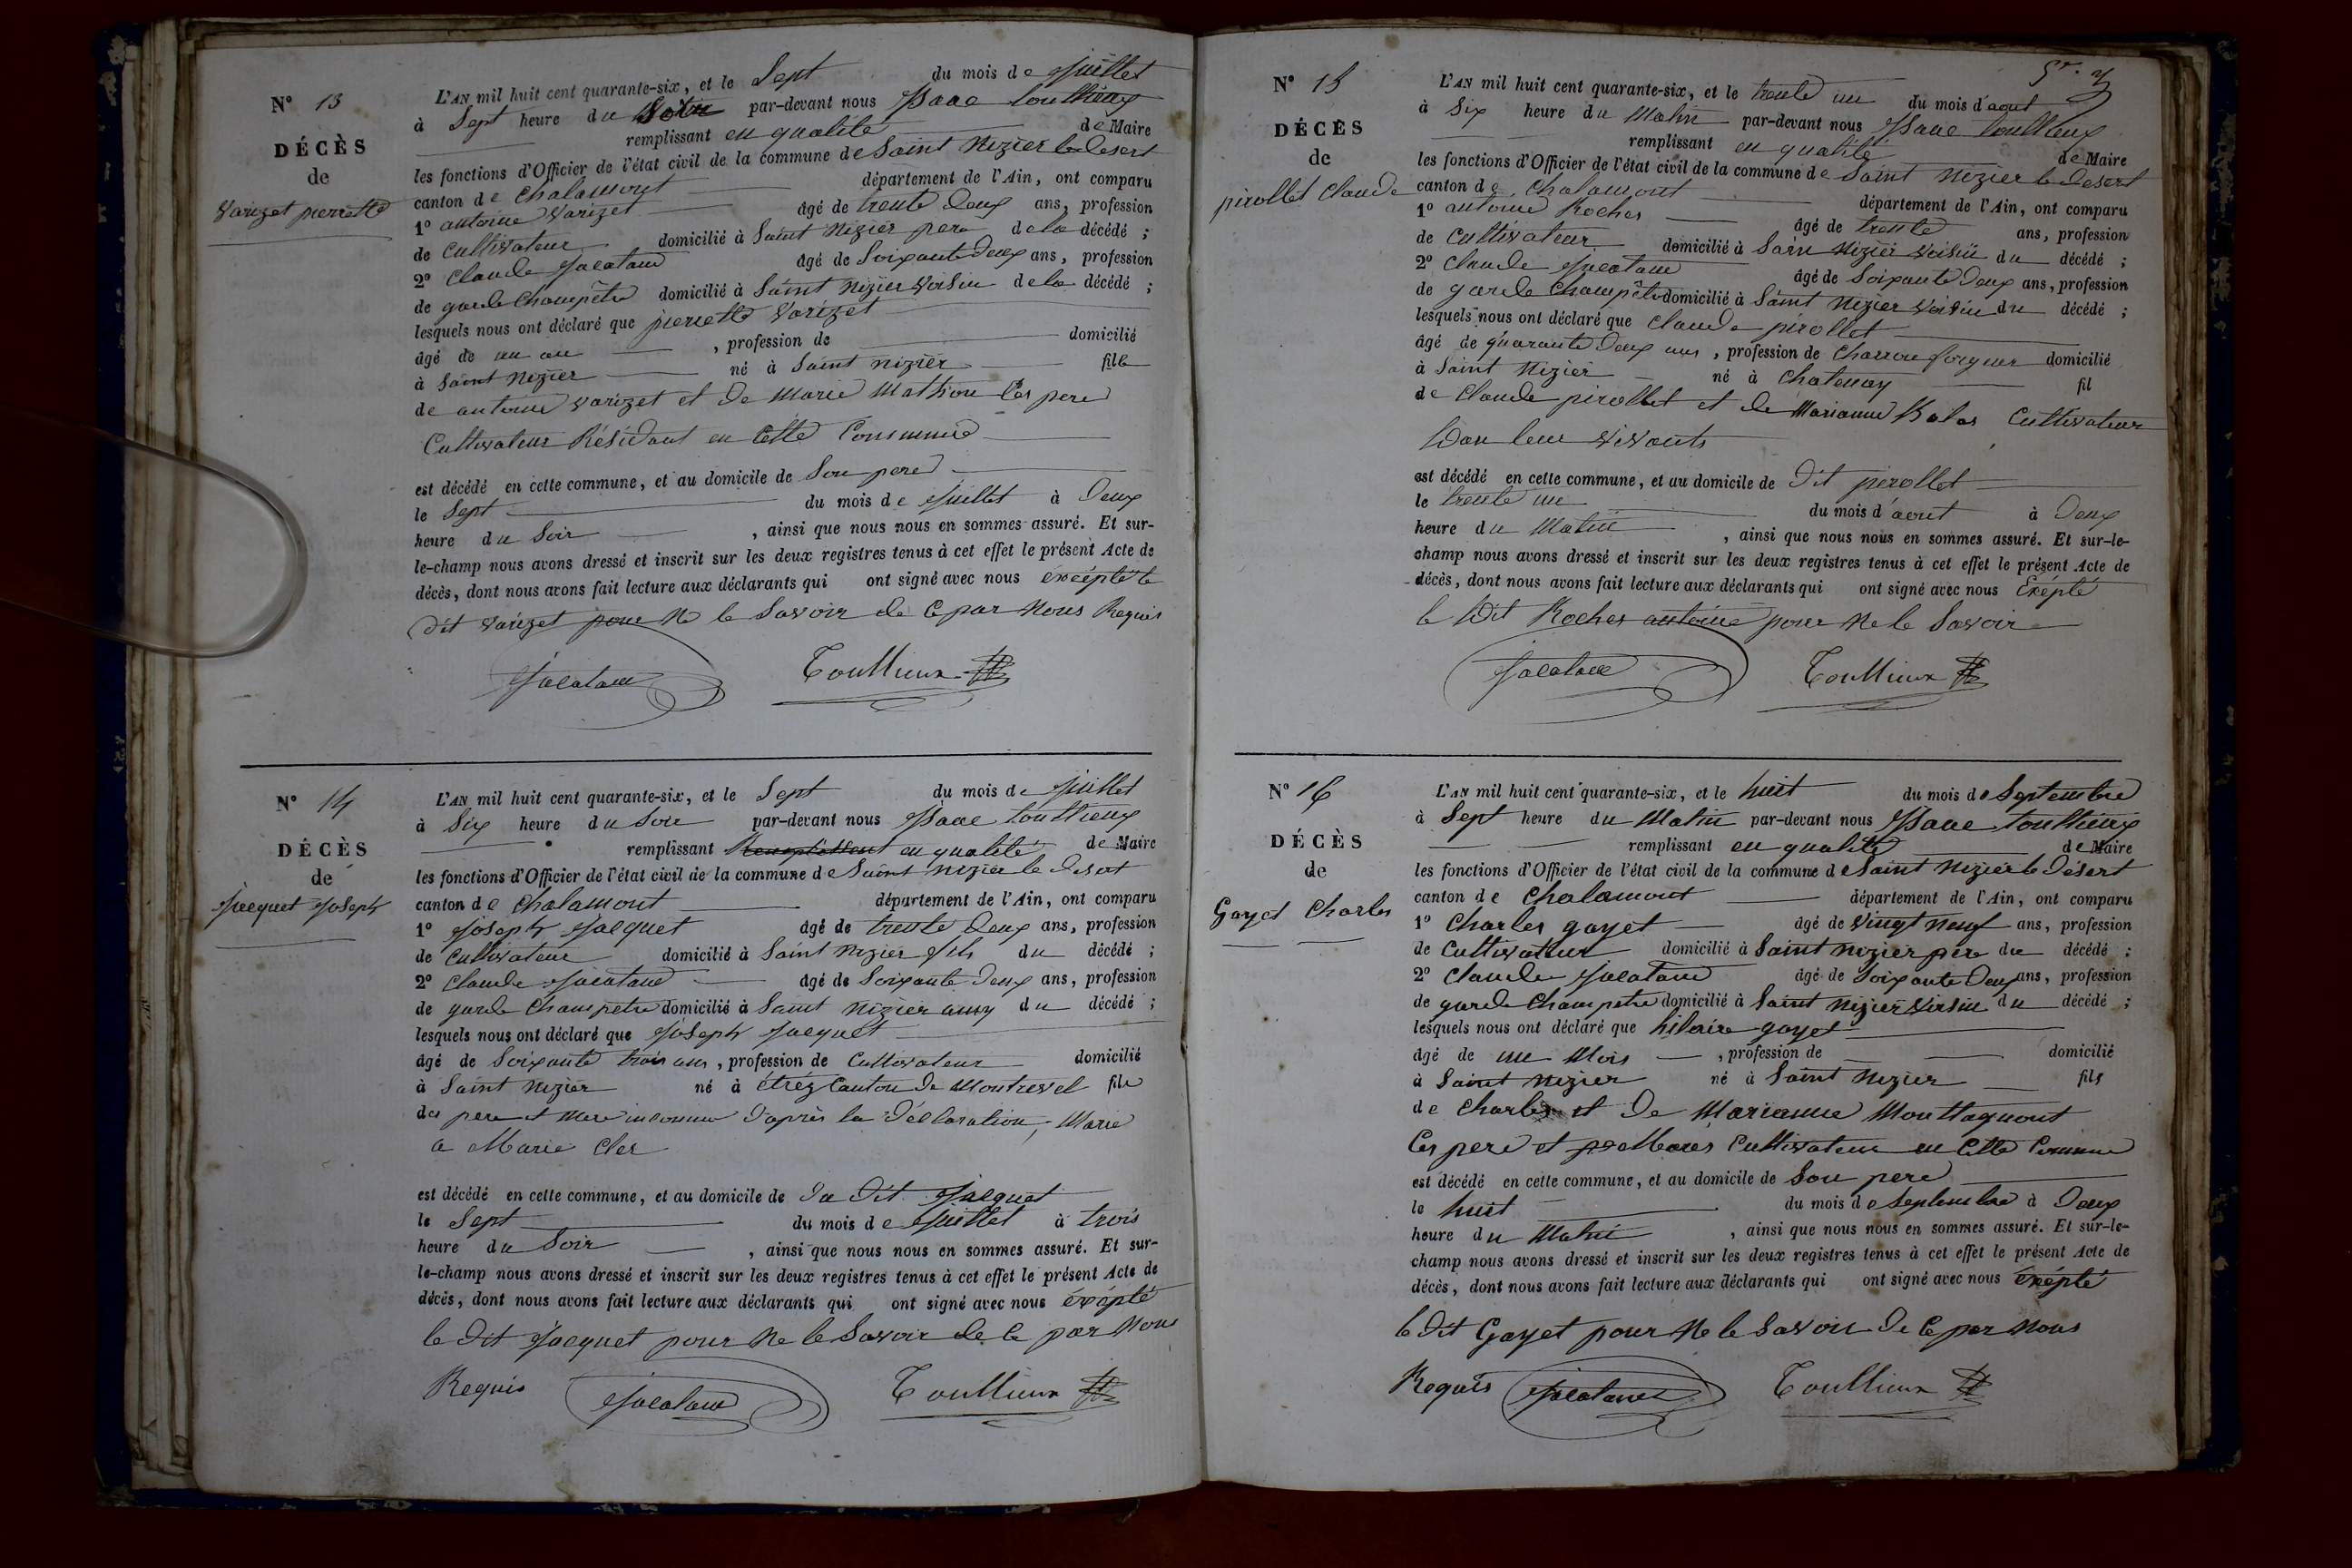 N° 13
DÉCÈS
de
Varizet pierrette
L'AN mil huit cent quarante-six, et le Sept du mois de Juillet
à Sept heure du Soir par-devant nous Isaac Toullieux
remplissant en qualité de Maire
les fonctions d'Officier de l'état civil de la commune de Saint Nizier le Desert
canton de Chalamont département de l'Ain, ont comparu
1° antoine Varizet âgé de trente Deux ans, profession
de Cultivateur domicilié à Saint Nizier pere de la décédé ;
2° Claude Jacataud âgé de Soixante Deux ans, profession
de garde Champêtre domicilié à Saint Nizier Voisin de la décédé ;
lesquels nous ont déclaré que pierrette Varizet
âgé de un an , profession de domicilié
à Saint Nizier né à Saint Nizier fille
de antoine Varizet et De Marie Mathion Ces pere
Cultivateur Résidant en Cette Commune
est décédé en cette commune, et au domicile de Son pere
le Sept du mois de Juillet à Deux
heure du Soir , ainsi que nous nous en sommes assuré. Et sur-
le-champ nous avons dressé et inscrit sur les deux registres tenus à cet effet le présent Acte de
décès, dont nous avons fait lecture aux déclarants qui ont signé avec nous éxcépté le
Dit Varizet pour Ne le Savoir de Ce par Nous Requis
Jacataud Toullieux
N° 14
DÉCÈS
de
Jacquet Joseph
L'AN mil huit cent quarante-six, et le Sept du mois de Juillet
à Six heure du Soir par-devant nous Isaac Toullieux
remplissant Remplissant en qualité de Maire
les fonctions d'Officier de l'état civil de la commune de Saint Nizier le Desert
canton de Chalamont département de l'Ain, ont comparu
1° Joseph Jacquet âgé de trente Deux ans, profession
de Cultivateur domicilié à Saint Nizier fils du décédé ;
2° Claude Jacataud âgé de Soixante Deux ans, profession
de garde Champetre domicilié à Saint Nizier amy du décédé ;
lesquels nous ont déclaré que Joseph Jacquet
âgé de Soixante trois ans , profession de Cultivateur domicilié
à Saint Nizier né à étréz Canton De Montrevel fils
de pere et Mere inconnu D'après la Déclaration, Marié
a Marie Cler
est décédé en cette commune, et au domicile de Du Dit Jacquet
le Sept du mois de Juillet à trois
heure du Soir , ainsi que nous nous en sommes assuré. Et sur-
le-champ nous avons dressé et inscrit sur les deux registres tenus à cet effet le présent Acte de
décès, dont nous avons fait lecture aux déclarants qui ont signé avec nous éxépté
le Dit Jacquet pour Ne le Savoir De Ce par Nous
Requis Jacataud Toullieux
N° 15
DÉCÈS
de
pirollet Claude
L'AN mil huit cent quarante-six, et le trente un du mois d'aout
à Six heure du Matin par-devant nous Isaac Toullieux
remplissant en qualité de Maire
les fonctions d'Officier de l'état civil de la commune de Saint Nizier le Desert
canton de Chalamont département de l'Ain, ont comparu
1° antoine Rocher âgé de trente ans, profession
de Cultivateur domicilié à Sain Nizier Voisin du décédé ;
2° Claude Jacataud âgé de Soixante Deux ans, profession
de garde Champêtre domicilié à Saint Nizier Voisin du décédé ;
lesquels nous ont déclaré que Claude pirollet
âgé de quarante Deux ans , profession de Charron domicilié
à Saint Nizier né à Chatenay fil
de Claude pirollet et de Marianne Cultivateur
De leur Vivants
est décédé en cette commune, et au domicile de Dit pirollet
le trente un du mois d'aout à Deux
heure du Matin , ainsi que nous nous en sommes assuré. Et sur-le-
champ nous avons dressé et inscrit sur les deux registres tenus à cet effet le présent Acte de
décès, dont nous avons fait lecture aux déclarants qui ont signé avec nous Exépté
le Dit Rocher antoine pour Ne le Savoir
Jacataud Toullieux
N° 16
DÉCÈS
de
Gayet Charles
L'AN mil huit cent quarante-six, et le huit du mois de Septembre
à Sept heure du Matin par-devant nous Isaac Toullieux
remplissant en qualité de Maire
les fonctions d'Officier de l'état civil de la commune de Saint Nizier le Désert
canton de Chalamont département de l'Ain, ont comparu
1° Charles gayet âgé de Vingt Neuf ans, profession
de Cultivateur domicilié à Saint Nizier pere du décédé ;
2° Claude Jacataud âgé de Soixante Deux ans, profession
de garde Champetre domicilié à Saint Nizier Voisin du décédé ;
lesquels nous ont déclaré que hilaire gayet
âgé de un Mois , profession de domicilié
à Saint Nizier né à Saint Nizier fils
de Charles et De Marianne Monttagnont
Ces pere et Meres Cultivateur en Cette Commune
est décédé en cette commune, et au domicile de Son pere
le huit du mois de Septembre à Deux
heure du Matin , ainsi que nous nous en sommes assuré. Et sur-le-
champ nous avons dressé et inscrit sur les deux registres tenus à cet effet le présent Acte de
décès, dont nous avons fait lecture aux déclarants qui ont signé avec nous éxépté
le Dit Gayet pour Ne le Savoir De Ce par Nous
Requis Jacataud Toullieux